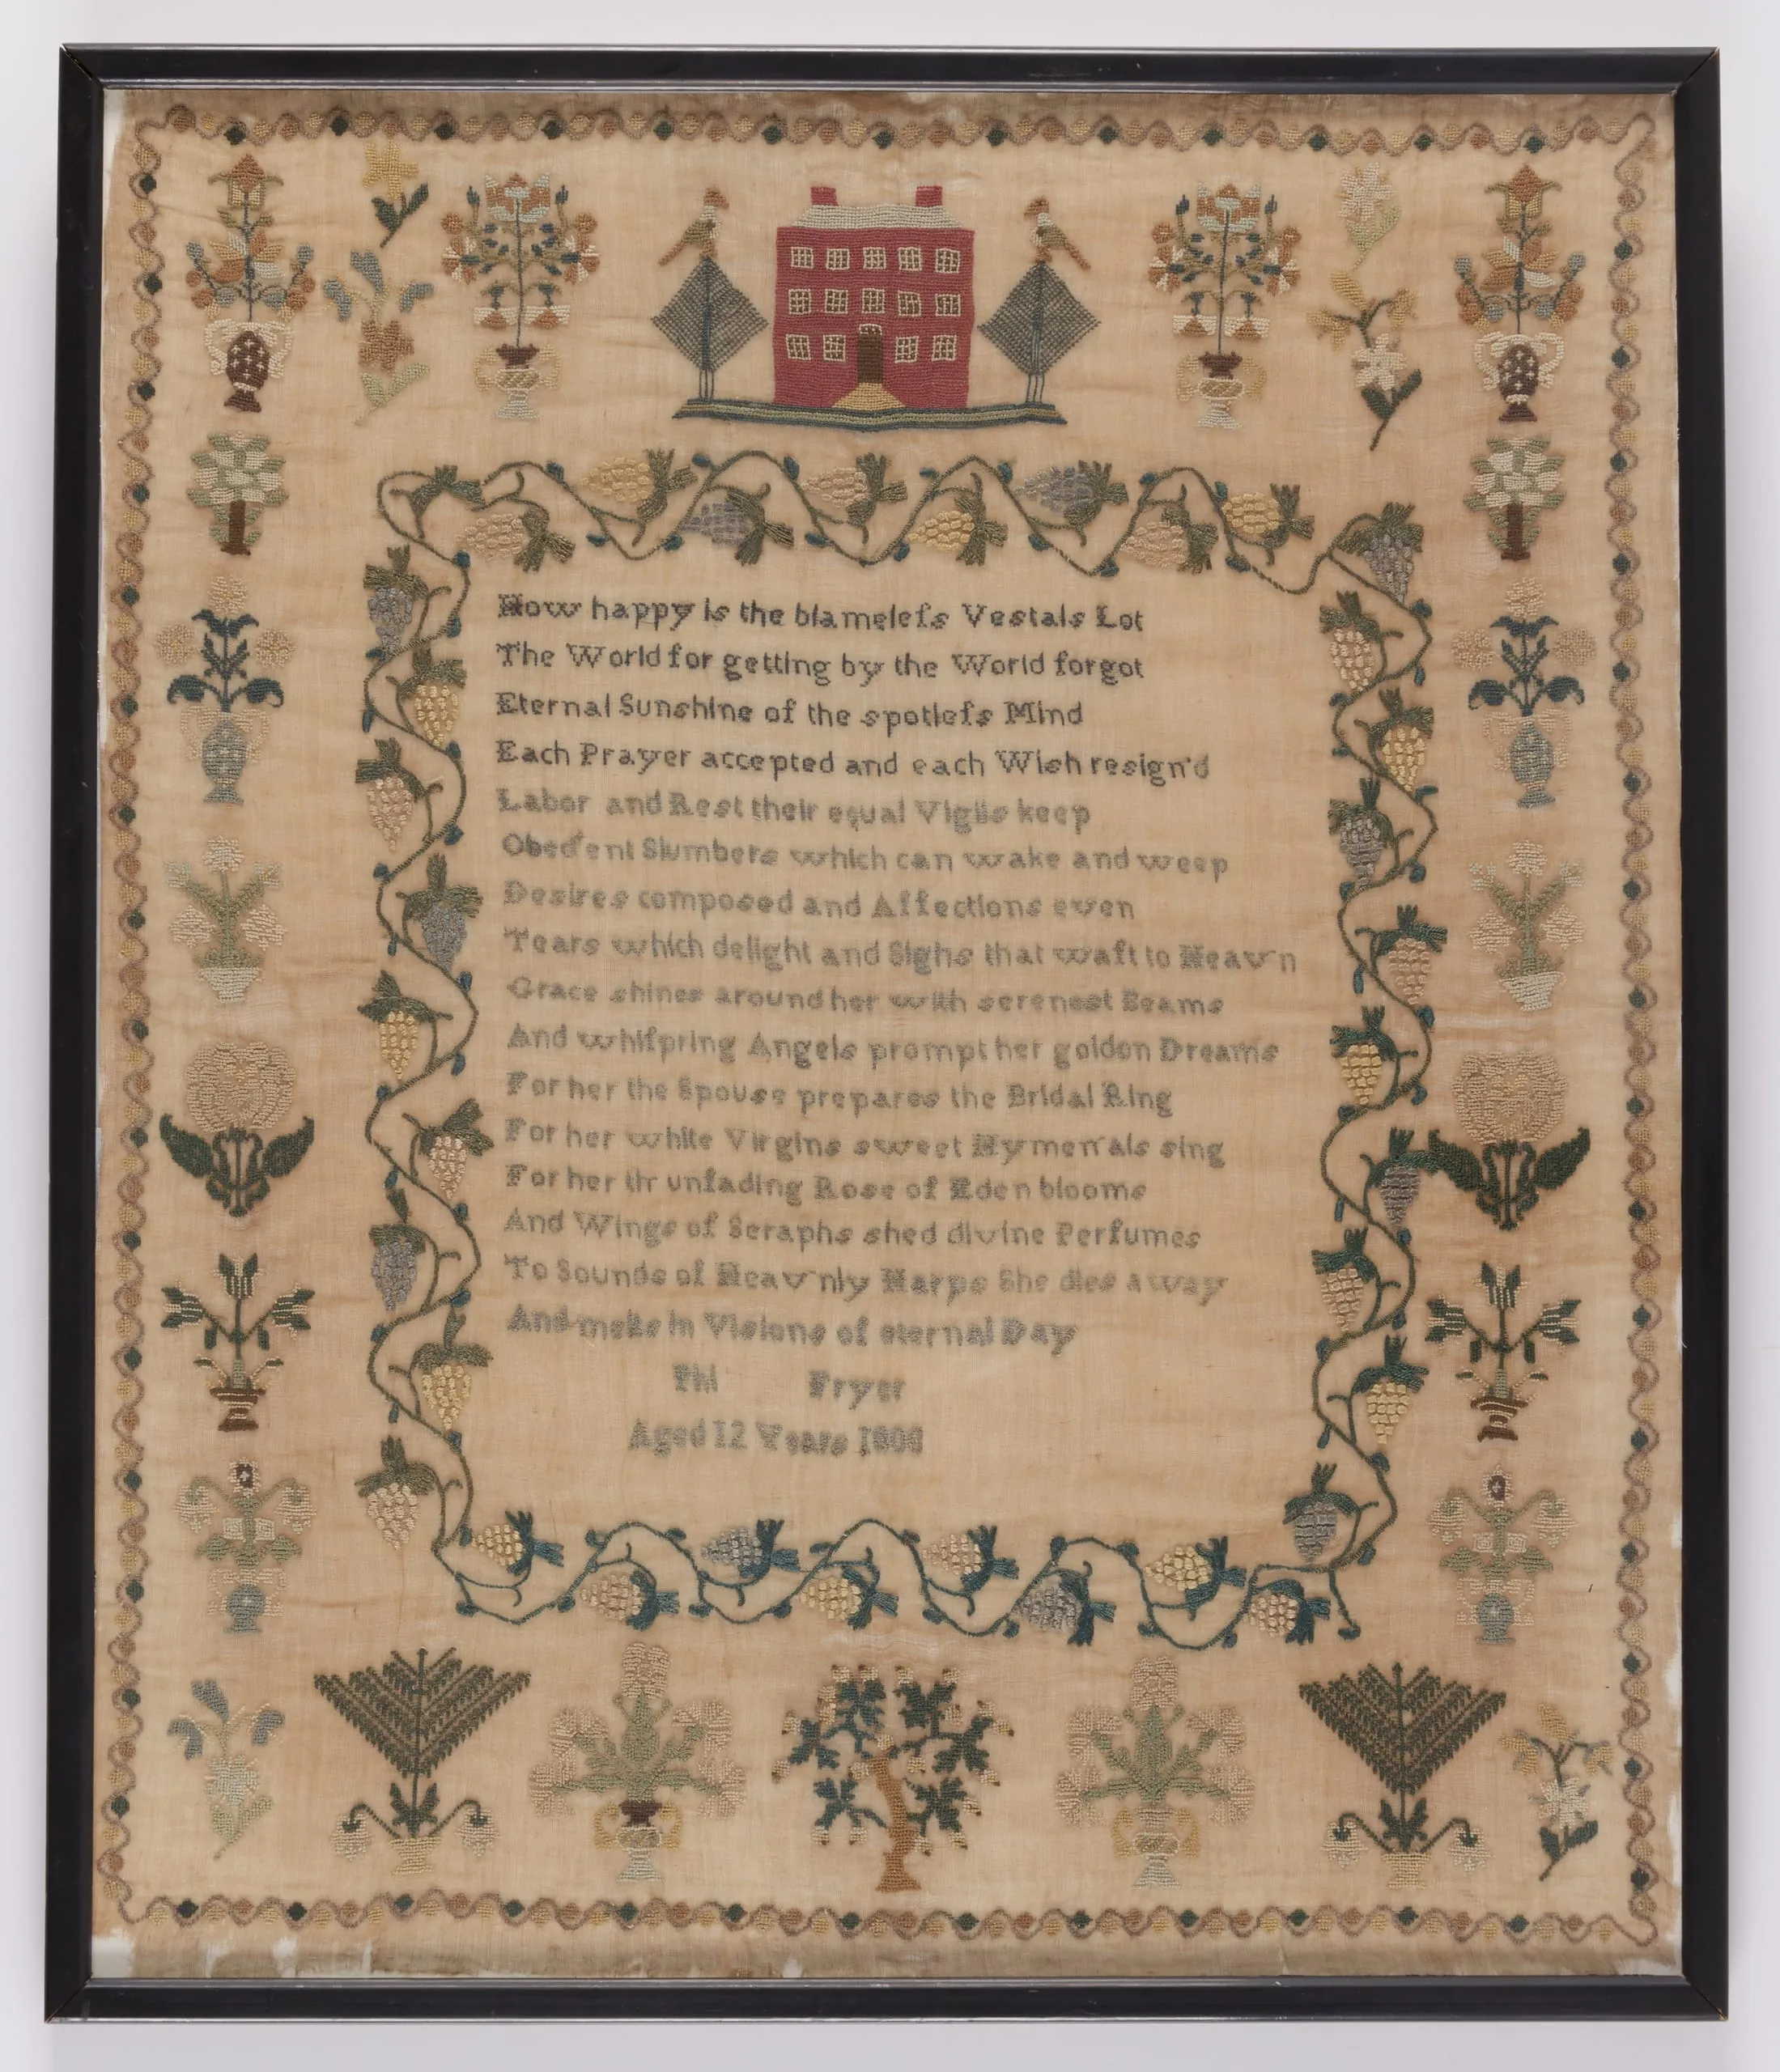 How happy is the blamelefs Vestals Lot
The World for getting by the World forgot
Eternal Sunshine of the spotlefs Mind
Each Prayer accepted and each Wish resign'd
Labor and Rest their equal Vigils keep
Obed'ent Slumbers which can wake and weep
Desires composed and Affections even
Tears which delight and Sighs that waft to Heav'n
Grace shines around her with serenest Beams
And whifpring Angels prompt her golden Dreams
For her the Spouse prepares the Bridal Ring
For her white Virgins sweet Hymen'als sing
For her th' unfading Rose of Eden blooms
And Wings of Seraphs shed divine Perfumes
To Sounds of Heav'nly Harps She dies away
And melts in Visions of eternal Day
Phi Fryer
Aged 12 Years